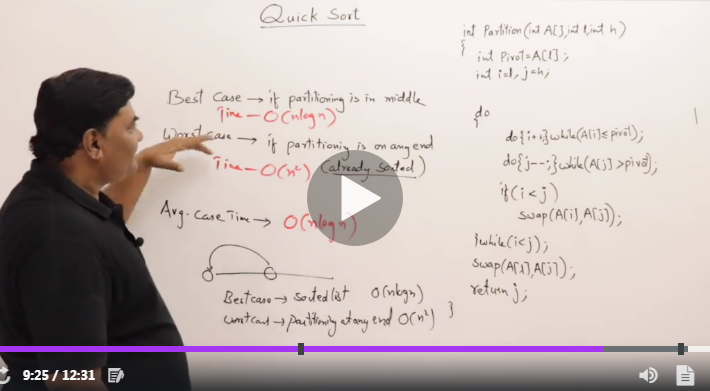 Quick Sort
Best Case → if partitioning is in middle
Time — O(nlogn)
Worst case → if partitioning is on any end
Time — O(n²) (already sorted)
Avg. case Time → O(nlogn)
Best case → sorted list O(nlogn)
worst case → partitioning at any end O(n²)
int Partition(int A[],int l,int h)
{
int Pivot=A[l];
int i=l, j=h;
do
{
do{i++;}while(A[i]≤pivot);
do{j--;}while(A[j]>pivot);
if(i<j)
swap(A[i],A[j]);
}while(i<j);
swap(A[l],A[j]);
return j;
}
9:25 / 12:31